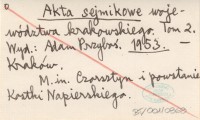 Akta sejmikowe woje-
wództwa krakowskiego. Tom 2.
Wyd.: Adam Przyboś. 1953. —
Kraków.
M. in. Czorsztyn i powstanie
Kostki Napierskiego.